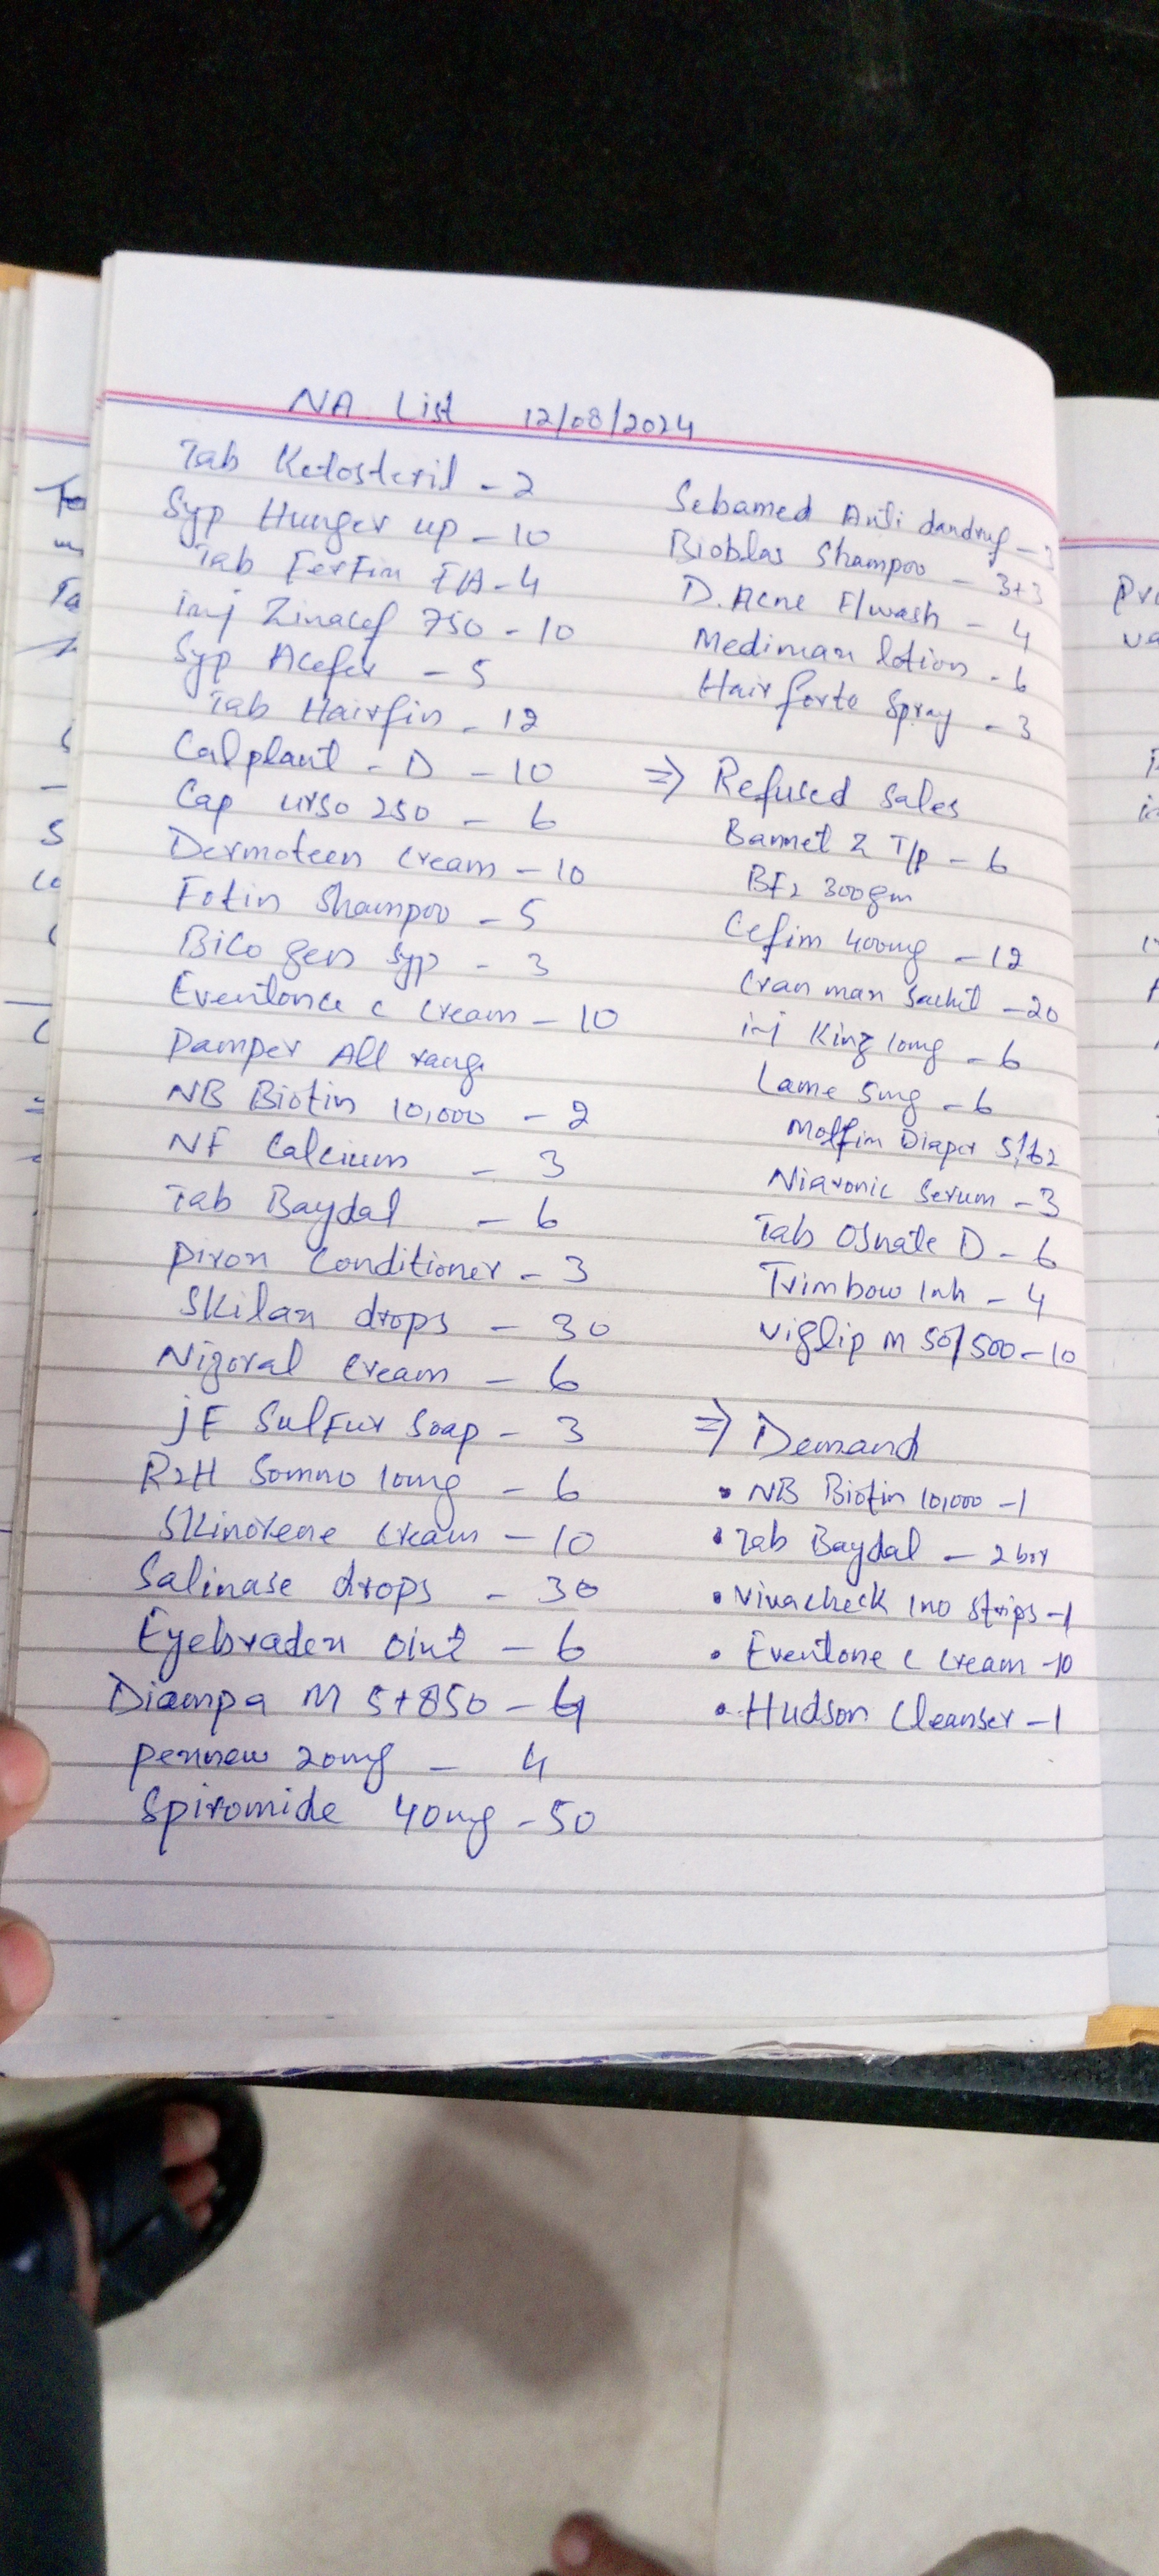 NA List 12/08/2024
Tab Ketosteril - 2
Syp Hunger up - 10
Tab Ferfin FA - 4
inj Zinacef 750 - 10
Syp Acefer - 5
Tab Hairfin - 12
Calplant - D - 10
Cap urso 250 - 6
Dermoteen Cream - 10
Fotin Shampoo - 5
Bico gen Syp - 3
Eventone c Cream - 10
Pamper All rang
NB Biotin 10,000 - 2
NF Calcium - 3
Tab Baydal - 6
Piron Conditioner - 3
Skilax drops - 30
Nizoral Cream - 6
JF Sulfur Soap - 3
R2H Somno 10mg - 6
Skinorene Cream - 10
Salinase drops - 30
Eyebradex oint - 6
Diampa M 5+850 -
pennew 20mg - 4
Spiromide 40mg - 50
Sebamed Anti dandruf - 3
Bioblas Shampoo - 3+3
D. Acne F/wash - 4
Medimax lotion - 6
Hair forte Spray - 3
⇒ Refused Sales
Bannet 2 T/p - 6
BF2 300gm
Cefim 400mg - 12
Cran max Sachit - 20
inj King 10mg - 6
Lame 5mg - 6
Molfix Diaper
Niaronic Serum - 3
Tab Osnate D - 6
Trimbow Inh - 4
Viglip M 50/500 - 10
⇒ Demand
• NB Biotin 10,000 - 1
• Tab Baydal - 2 box
• Vivacheck Ino Strips - 1
• Eventone c Cream - 10
• Hudson Cleanser - 1